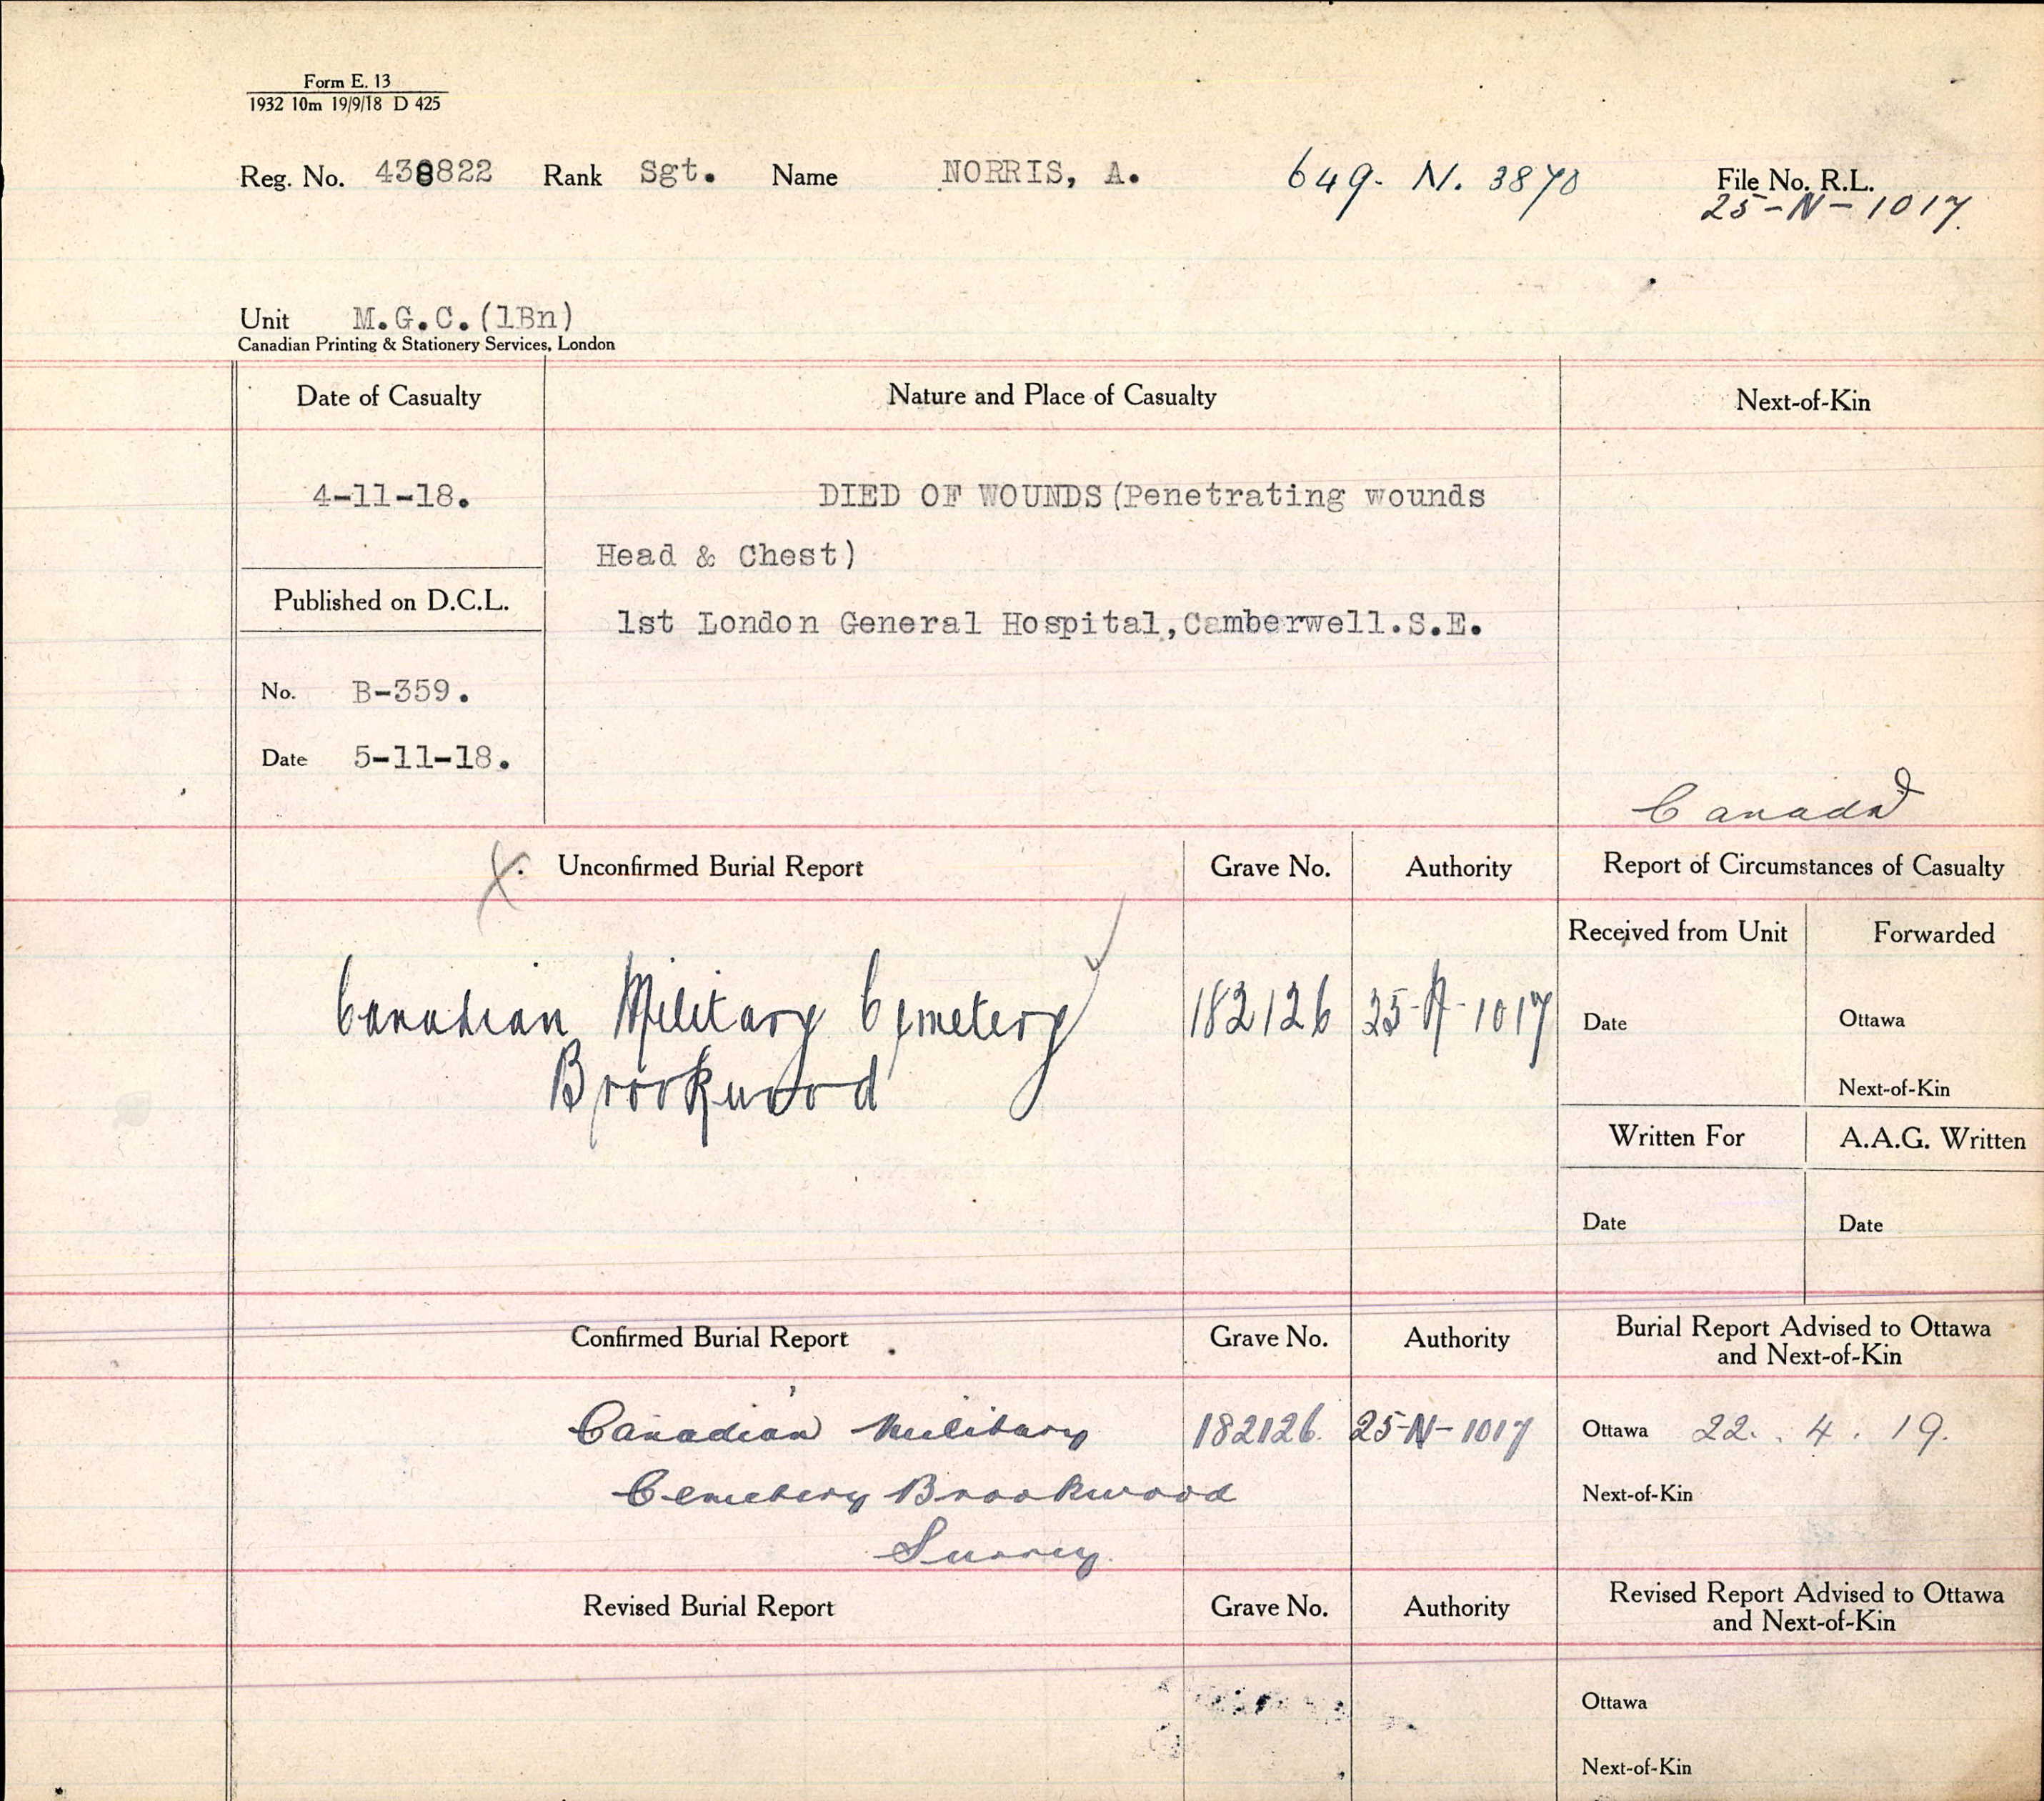 Form E. 13
1932 10m 19/9/18 D 425
Reg. No. 438822 Rank Sgt. Name NORRIS, A. 649- N. 3870 File No. R.L.
25-N-1017.
Unit M.G.C.(1Bn)
Canadian Printing & Stationery Services, London
Date of Casualty Nature and Place of Casualty Next-of-Kin
4-11-18. DIED OF WOUNDS(Penetrating wounds
Head & Chest)
Published on D.C.L.
1st London General Hospital,Camberwell.S.E.
No. B-359.
Date 5-11-18.
Canada
X. Unconfirmed Burial Report Grave No. Authority Report of Circumstances of Casualty
Received from Unit Forwarded
Canadian Military Cemetery 182126 25-N-1017 Date Ottawa
Brookwood Next-of-Kin
Written For A.A.G. Written
Date Date
Confirmed Burial Report Grave No. Authority Burial Report Advised to Ottawa
and Next-of-Kin
Canadian Military 182126. 25-N-1017 Ottawa 22. 4. 19.
Cemetery Brookwood Next-of-Kin
Surrey.
Revised Burial Report Grave No. Authority Revised Report Advised to Ottawa
and Next-of-Kin
Ottawa
Next-of-Kin